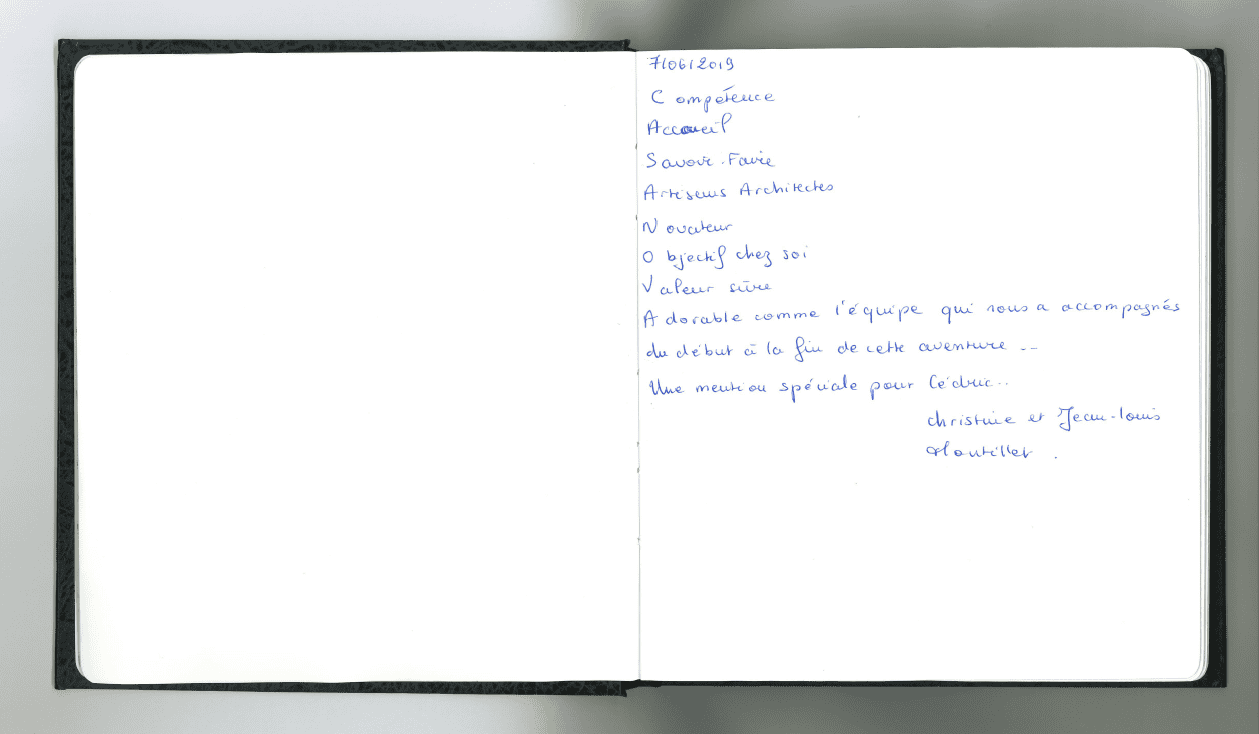 7/06/2019
Compétence
Accueil
Savoir-Faire
Artisans Architectes
Novateur
Objectif chez soi
Valeur sûre
Adorable comme l'équipe qui nous a accompagnés
du début à la fin de cette aventure ...
Une mention spéciale pour Cédric...
Christine et Jean-Louis